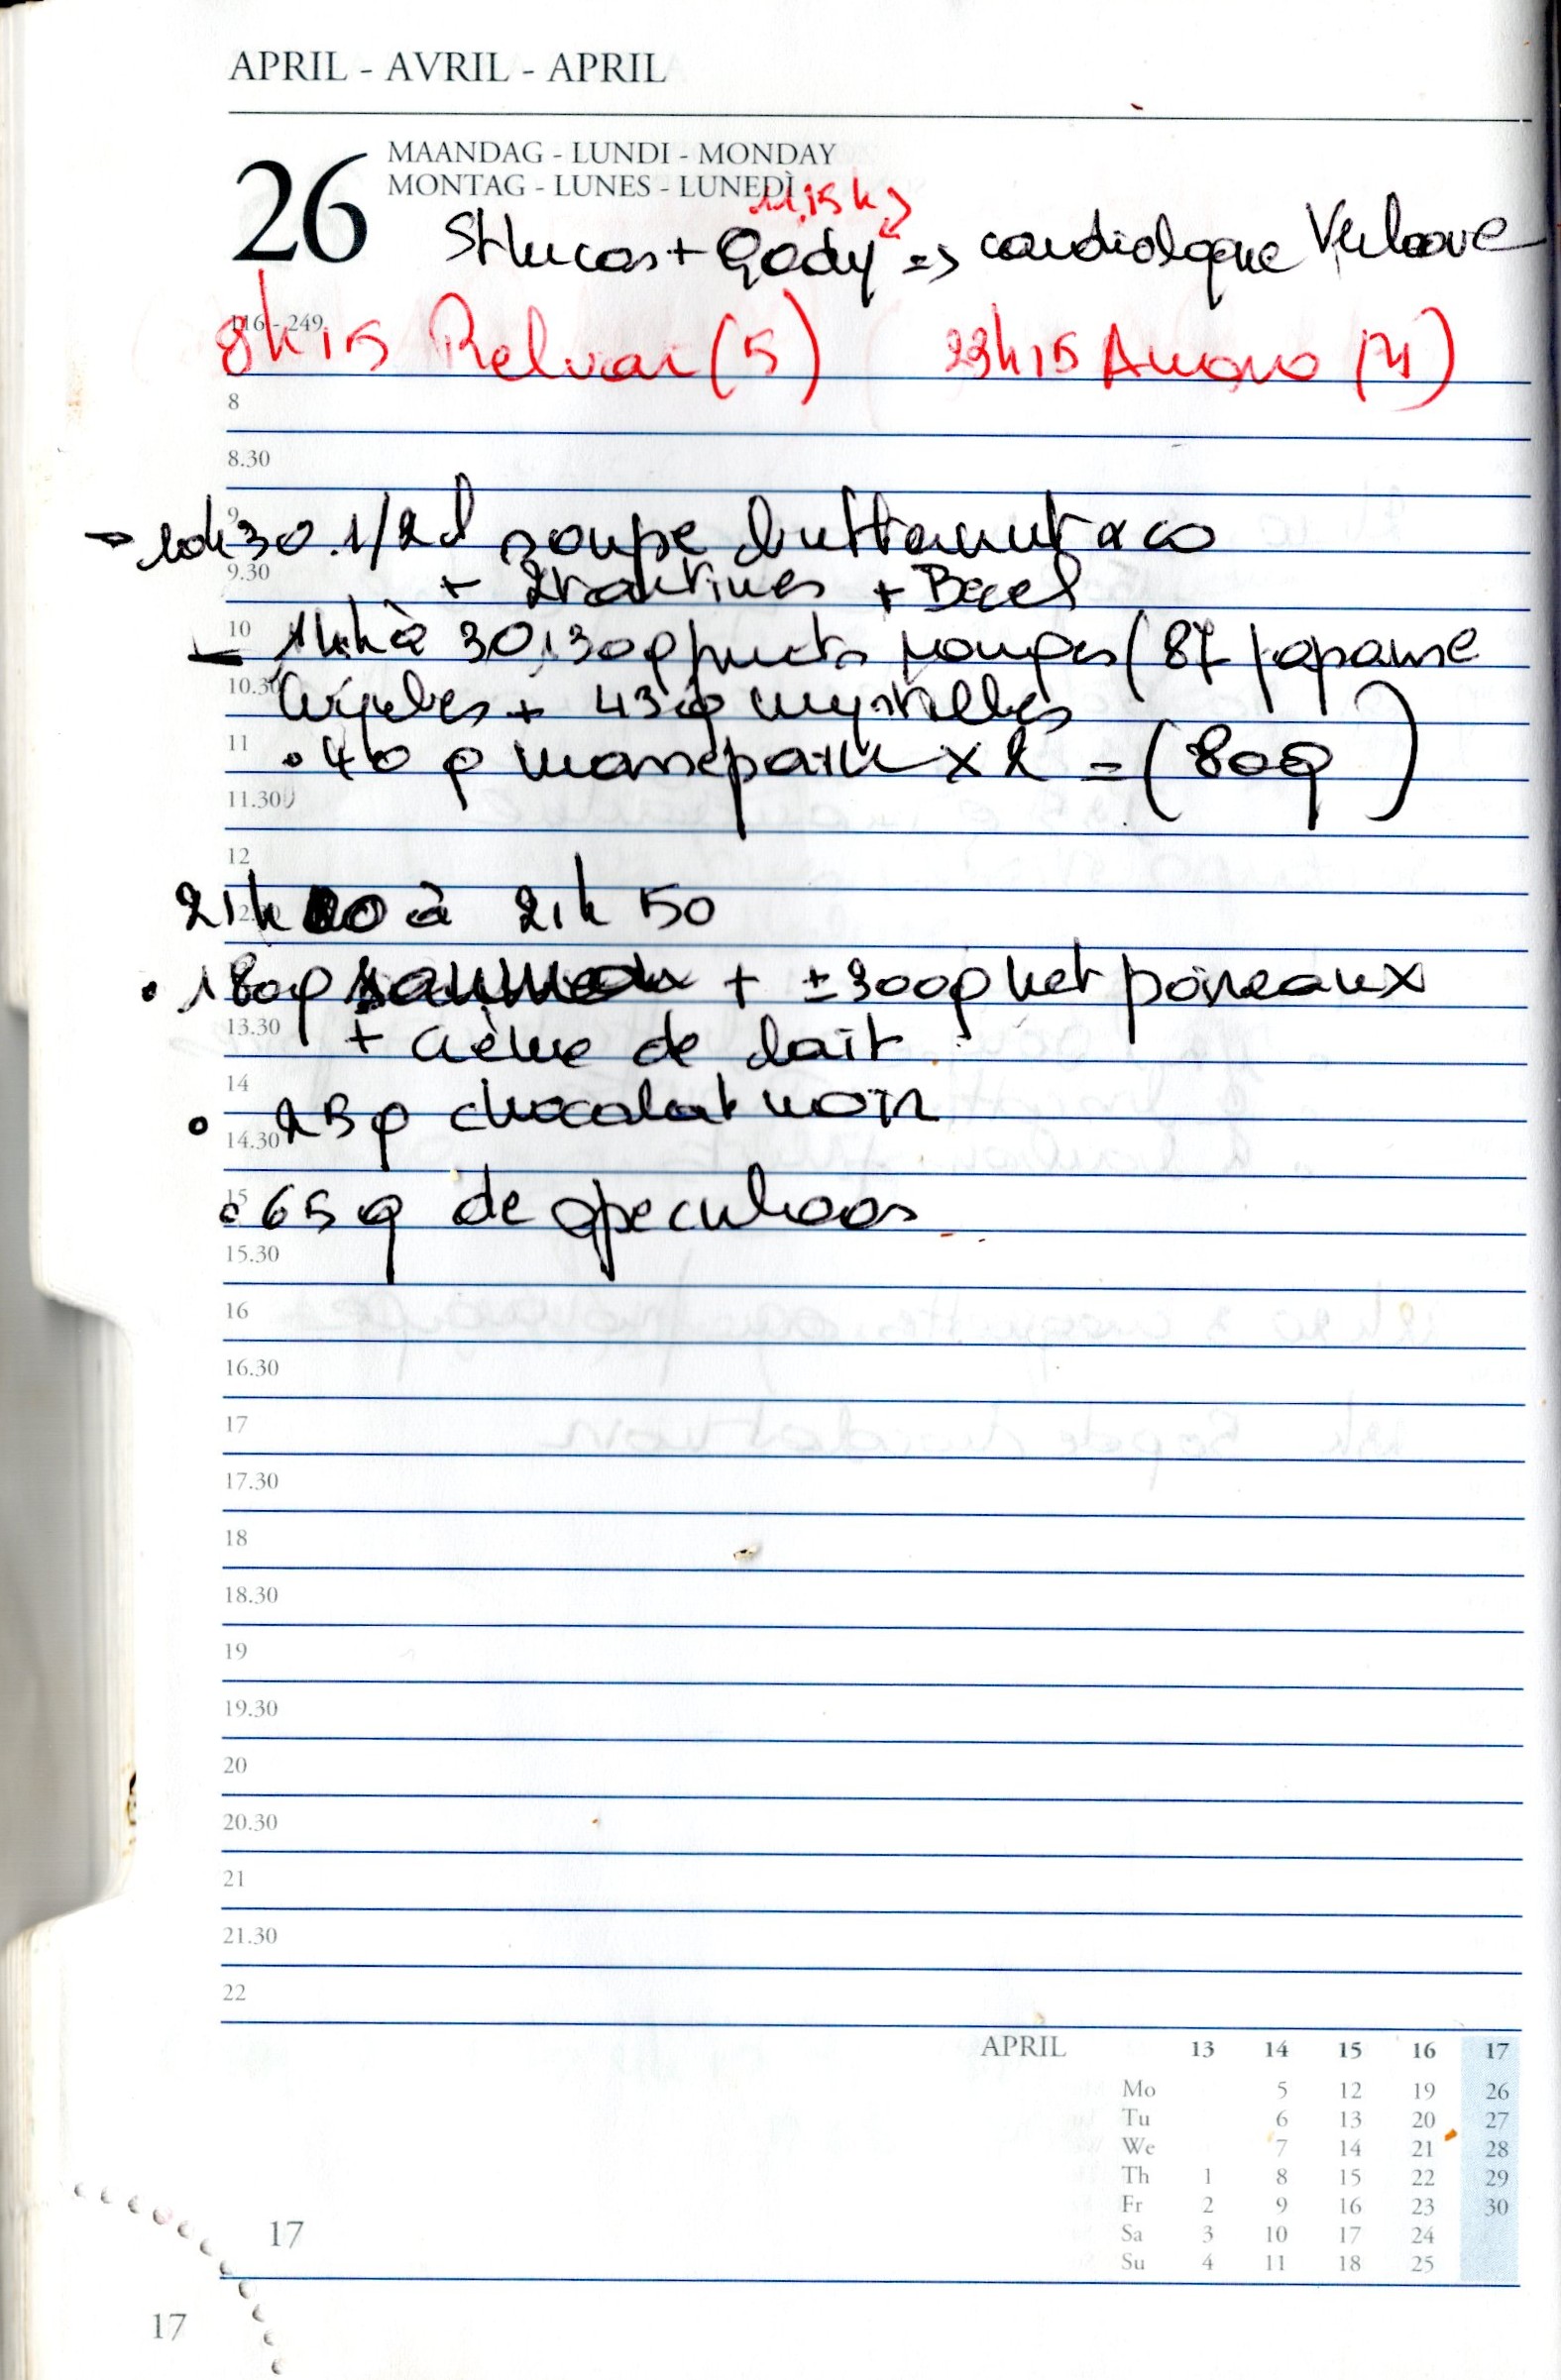 APRIL - AVRIL - APRIL
26
MAANDAG - LUNDI - MONDAY
MONTAG - LUNES - LUNEDÌ
11.15h
St Lucas + Gody => cardiologue Verloove
116 - 249
8h15 Relvar (5) 23h15 (4)
8
8.30
9
→ 10h30 . 1/2 l soupe butternut & co
9.30
+ 2 tartines + Becel
10
11h à 30 130g fruits rouges (87
10.30
+ 43g myrtilles
11
• 40 g massepain x 2 = (80g)
11.30
12
21h 20 à 21h 50
• 180g saumon + ± 300g net poireaux
13.30
+ crème de lait
14
• 25g chocolat noir
14.30
15
• 65g de speculoos
15.30
16
16.30
17
17.30
18
18.30
19
19.30
20
20.30
21
21.30
22
APRIL 13 14 15 16 17
Mo 5 12 19 26
Tu 6 13 20 27
We 7 14 21 28
Th 1 8 15 22 29
Fr 2 9 16 23 30
Sa 3 10 17 24
Su 4 11 18 25
17
17